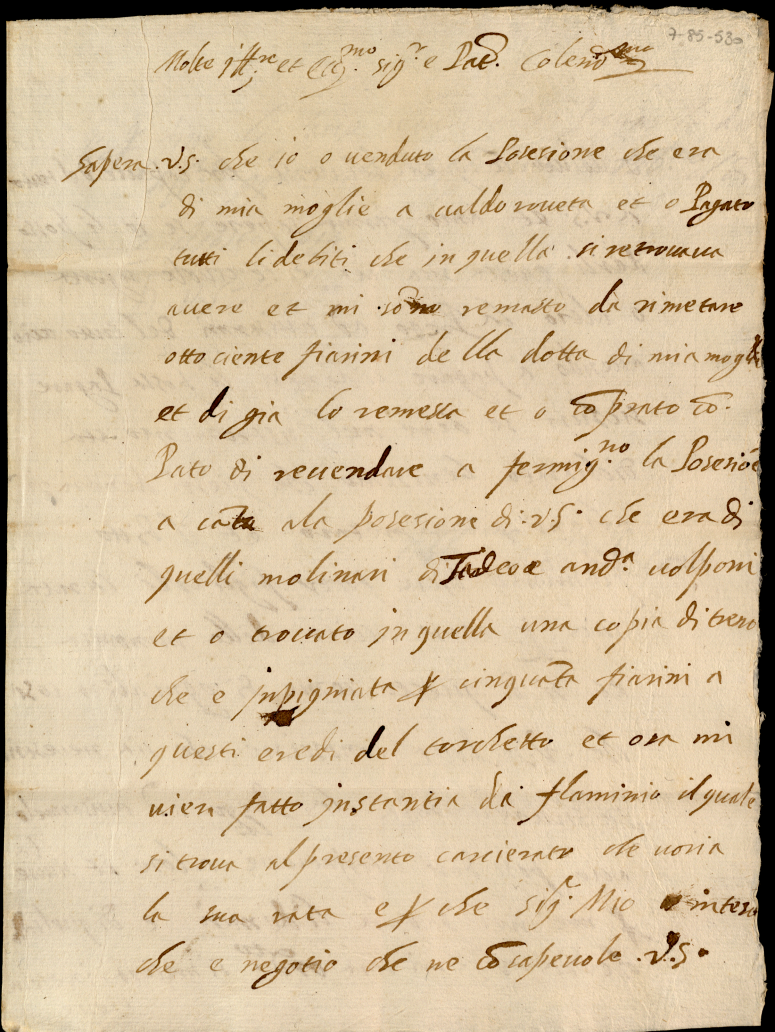 7-85-530
Molte Ill.re et Ecc.mo sig.r e Pat. Colend.mo
Sapera .V.S. che io o venduto la Posesione che era
di mia moglie a valdoroveta et o Pagato
tutti li debiti che in quella si retrovava
avere et mi sono remasto da rimetare
otto ciente fiarini della dotta di mia mogli
et di gia lo remessa et o cō prato cō.
Pato di revendare a fermig.no la Posesiōe
a cāta ala posesione di .V.S. che era di
quelli molinari di Tadeo e and.a volponi
et o trovato in quella una copia di tereno
che e inpigniata ꝑ cinquāta fiarini a
questi eredi del torchetto et ora mi
vien fatto instantia da flaminio il quale
si trova al presento carcierato che voria
la sua rata e ꝑ che sig.r Mio o inteso
che e negotio che ne cōsapevole .V.S.